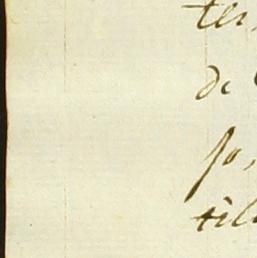 ter
de
so,
til